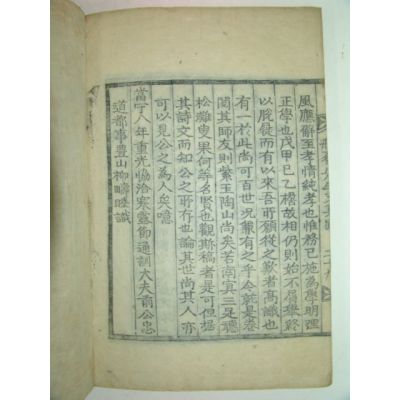 風廳辭至孝情純孝也惟務已施爲學明理
正學也戊甲巳乙楷故相仍則始不屑終
以脫屣而有以來吾所願從之歎者高識也
有一於此尚可百世况蒹有之乎今就是卷
閱其師友則紫玉陶山尚矣若南冥三足聽
松雖叟果何等名賢也觀斯稿者是可但據
其詩文而知公之所存也論其世尚其人亦
可以見公之爲人矣噫
當宁八年重光協洽寒露節通訓大夫前公忠
道都事豊山柳疇睦識